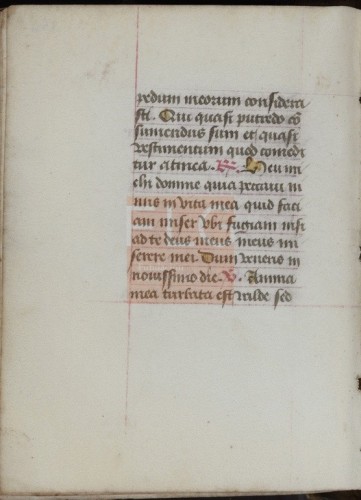 pedum meorum considera
sti. Qui quasi putredo cō
sumendus sum et quasi
vestimentum quod comedi
tur a tinea. R. Heu mi
chi domine quia peccavi ni
mis in vita mea quid faci
am miser ubi fugiam nisi
ad te deus meus meus mi
serere mei Dum veneris in
novissimo die. V. Anima
mea turbata est valde sed